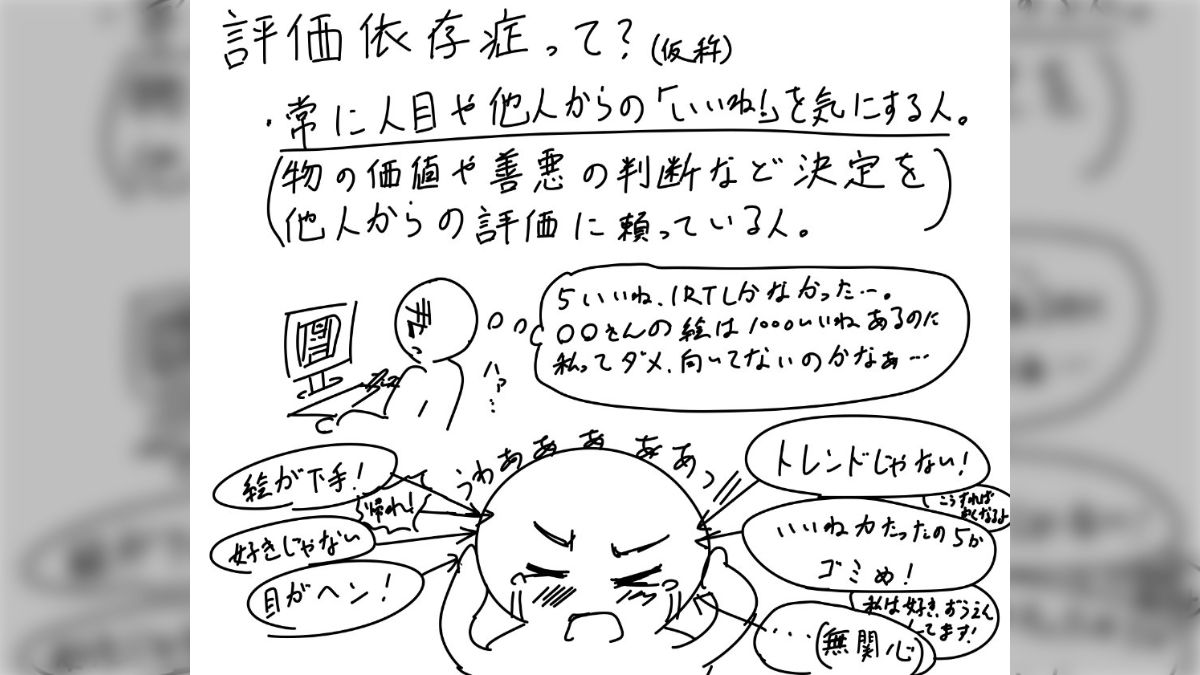 評価依存症って?(仮称)
・常に人目や他人からの「いいね!」を気にする人。
(物の価値や善悪の判断など決定を
他人からの評価に頼っている人。)
5いいね、1RTしかなかった…。
〇〇さんの絵は1000いいねあるのに
私ってダメ、向いてないのかなぁ…
ハァ…
うわあああああっ
絵が下手!
帰れ!
好きじゃない
目がヘン!
トレンドじゃない!
こうすれば
良くなるよ
いいね力たったの5か
ゴミめ!
私は好き、おうえん
してます!
…(無関心)